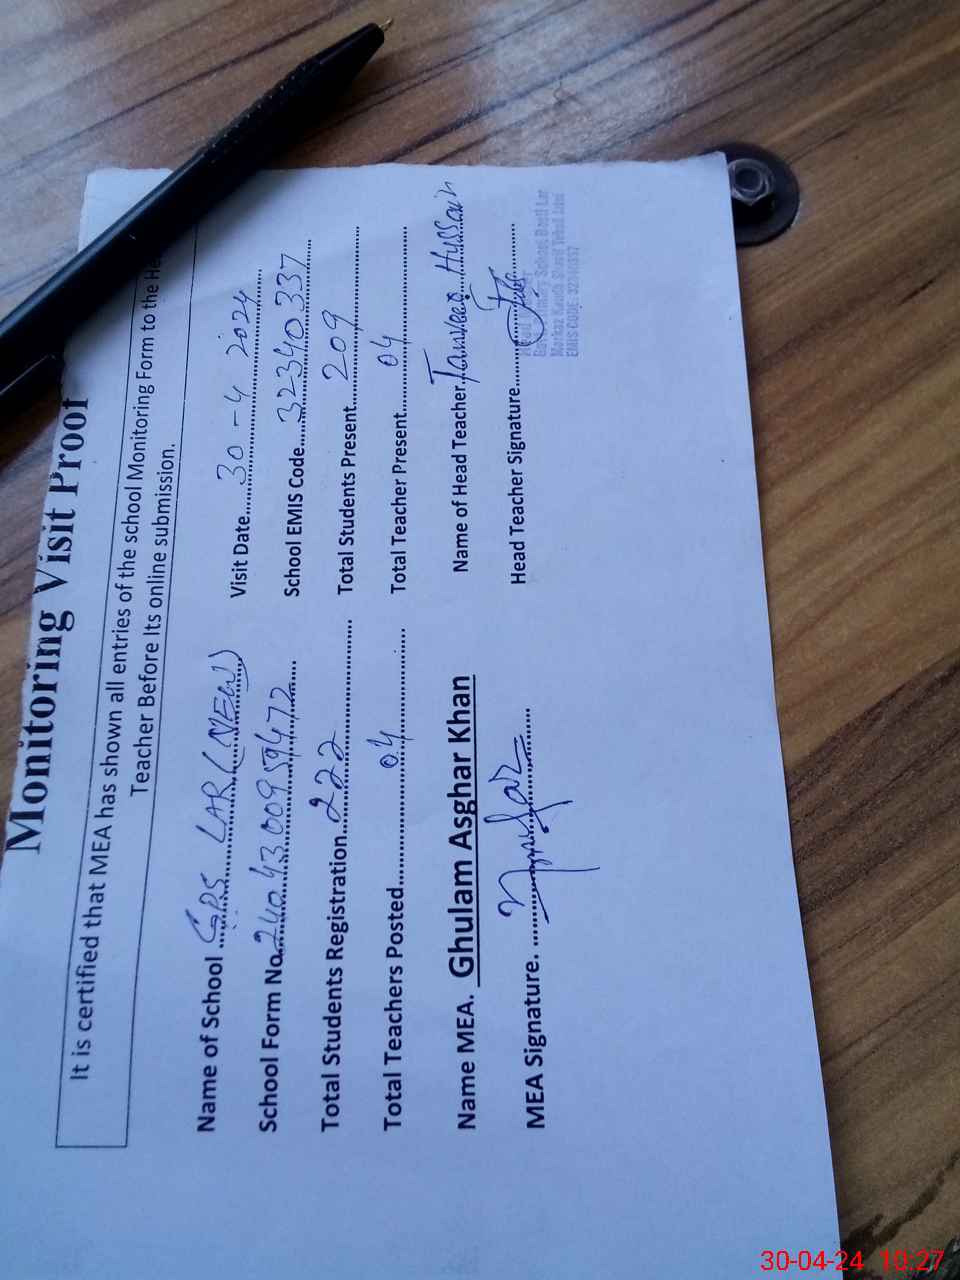 Monitoring Visit Proof
It is certified that MEA has shown all entries of the school Monitoring Form to the He
Teacher Before Its online submission.
Name of School GPS LAR (NEW) Visit Date 30-4 2024
School Form No. 240430095947 School EMIS Code 32340337
Total Students Registration 222 Total Students Present 209
Total Teachers Posted 04 Total Teacher Present 04
Name MEA. Ghulam Asghar Khan Name of Head Teacher Tanveer Hussain
MEA Signature. Head Teacher Signature
Head
School Basti Lar
EMIS CODE 32340337
30-04-24 10:27